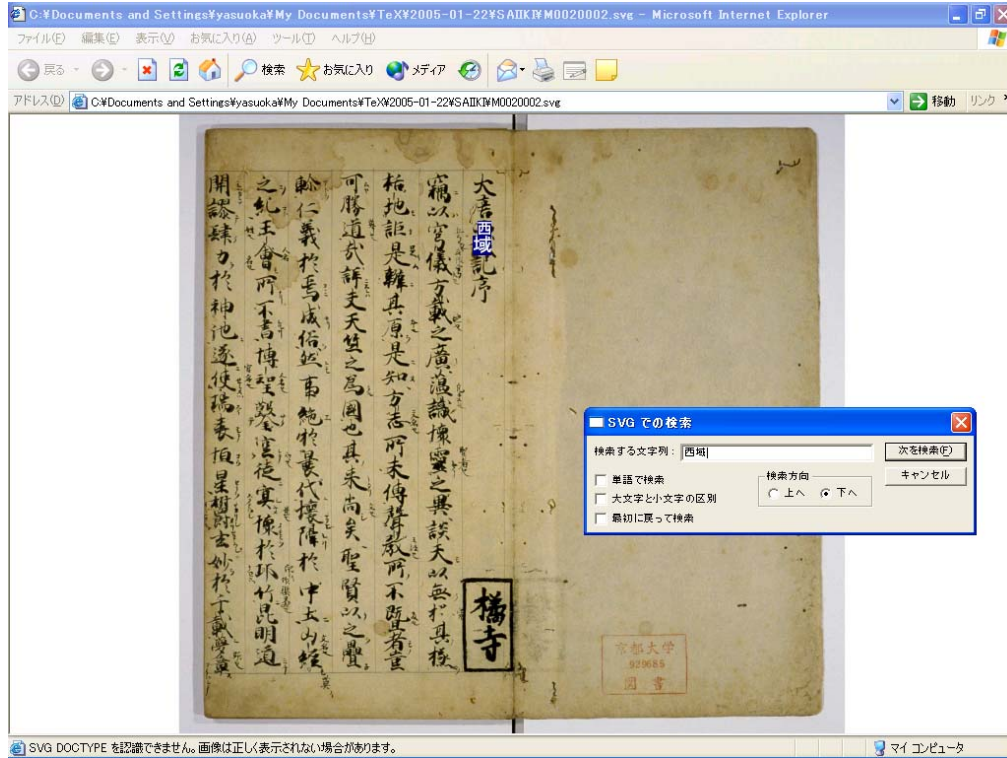 C:¥Documents and Settings¥yasuoka¥My Documents¥TeX¥2005-01-22¥SAIIKI¥M0020002.svg - Microsoft Internet Explorer
ファイル(F) 編集(E) 表示(V) お気に入り(A) ツール(T) ヘルプ(H)
戻る 検索 お気に入り メディア
アドレス(D) C:¥Documents and Settings¥yasuoka¥My Documents¥TeX¥2005-01-22¥SAIIKI¥M0020002.svg 移動 リンク
大唐西域記序
橘寺
竊以穹儀方載之廣薀識懷靈之異談天以無於其極
括地詎足辯其原是知方志所未傳聲教所不曁者豈
可勝道哉詳夫天竺之為国也其来尚矣聖賢以之疊
軫仁義於焉成俗然事絶於曩代壤隔於中土山経莫
之紀王會所不書博望鑿空徒寘懷於邛竹昆明道
閇謬肆力於神池遂使瑞表恒星欝玄妙於千載夢彰
京都大学
929685
図書
SVG での検索
検索する文字列: 西域 次を検索(F)
キャンセル
単語で検索
大文字と小文字の区別
最初に戻って検索
検索方向
上へ 下へ
SVG DOCTYPE を認識できません。画像は正しく表示されない場合があります。
マイ コンピュータ